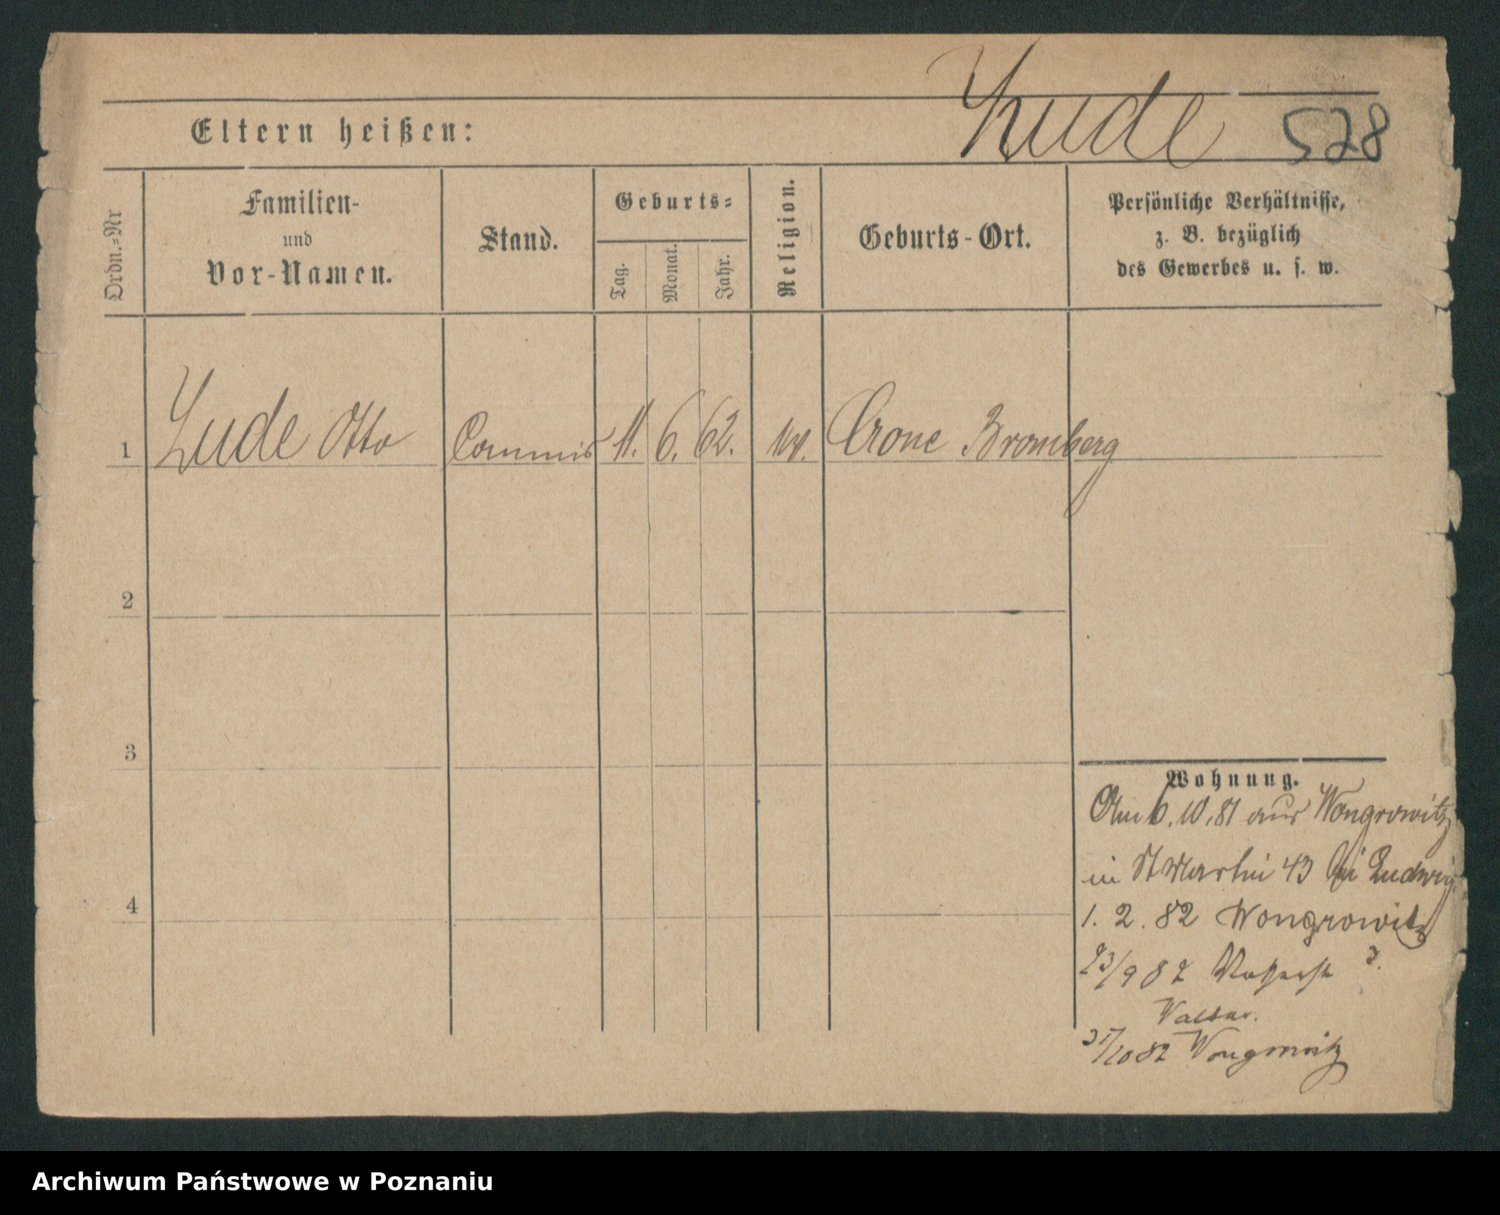 Lude 528
Eltern heißen:
Ordn.-Nr
Familien-
und
Vor-Namen.
Stand.
Geburts-
Tag.
Monat.
Jahr.
Religion.
Geburts-Ort.
Persönliche Verhältnisse,
z. B. bezüglich
des Gewerbes u. s. w.
1 Lude Otto Commis 11. 6. 62. Crone Bromberg
2
3
4
Wohnung.
Am 6. 10. 81 aus Wongrowitz
in St Martin 43 bei Ludwig
1. 2. 82 Wongrowitz
23/9 82
31/10 82 Wongrowitz
Archiwum Państwowe w Poznaniu